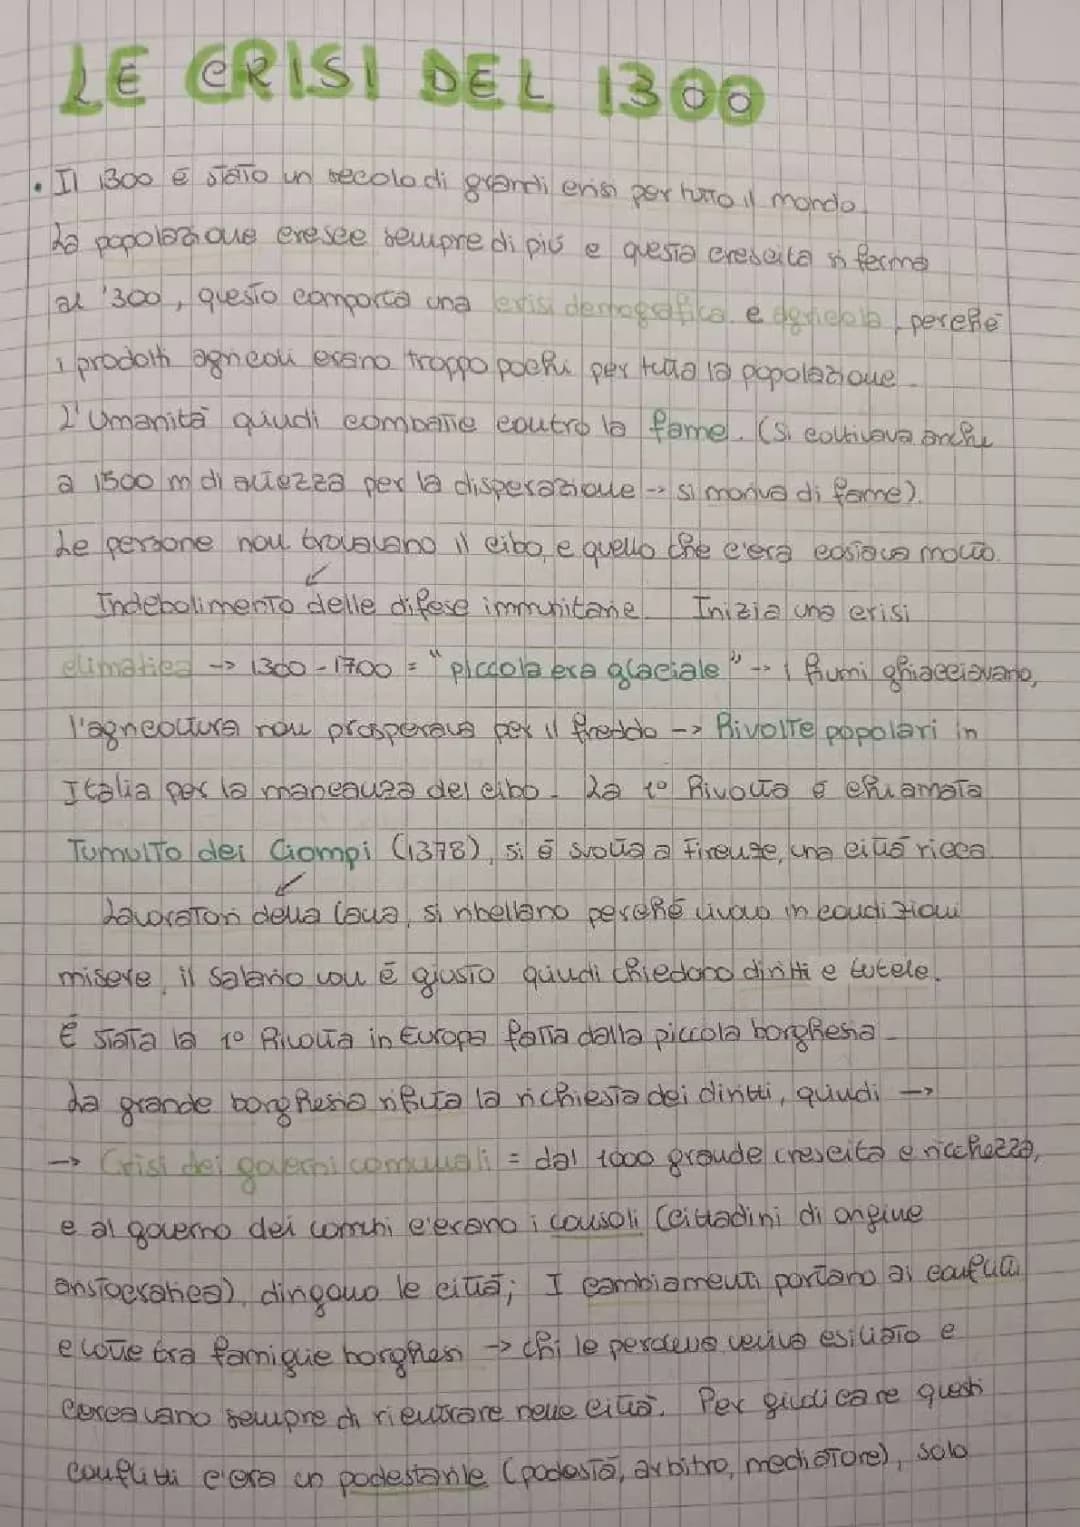 LE CRISI DEL 1300
• Il 1300 è stato un secolo di grandi crisi per tutto il mondo.
La popolazione cresce sempre di più e questa crescita si ferma
al '300, questo comporta una crisi demografica e agricola, perché
i prodotti agricoli erano troppo pochi per tutta la popolazione.
L'umanità quindi combatte contro la fame. (Si coltivava anche
a 1500 m di altezza per la disperazione -> si moriva di fame).
Le persone non trovavano il cibo, e quello che c'era costava molto.
Indebolimento delle difese immunitarie. Inizia una crisi
climatica -> 1300 - 1700 = "piccola era glaciale" -> i fiumi ghiacciavano,
l'agricoltura non prosperava per il freddo -> Rivolte popolari in
Italia per la mancanza del cibo. La 1° Rivolta è chiamata
Tumulto dei Ciompi (1378), si è svolta a Firenze, una città ricca
Lavoratori della lana, si ribellano perché vivono in condizioni
misere, il salario non è giusto quindi chiedono diritti e tutele.
È stata la 1° Rivolta in Europa fatta dalla piccola borghesia.
La grande borghesia rifiuta la richiesta dei diritti, quindi ->
-> Crisi dei governi comunali = dal 1000 grande crescita e ricchezza,
e al governo dei comuni c'erano i consoli (cittadini di origine
aristocratica), dirigono le città; I cambiamenti portano ai conflitti
e lotte tra famiglie borghesi -> chi le perdeva veniva esiliato e
cercavano sempre di rientrare nelle città. Per giudicare questi
conflitti c'era un podestarile (podestà, arbitro, mediatore), solo